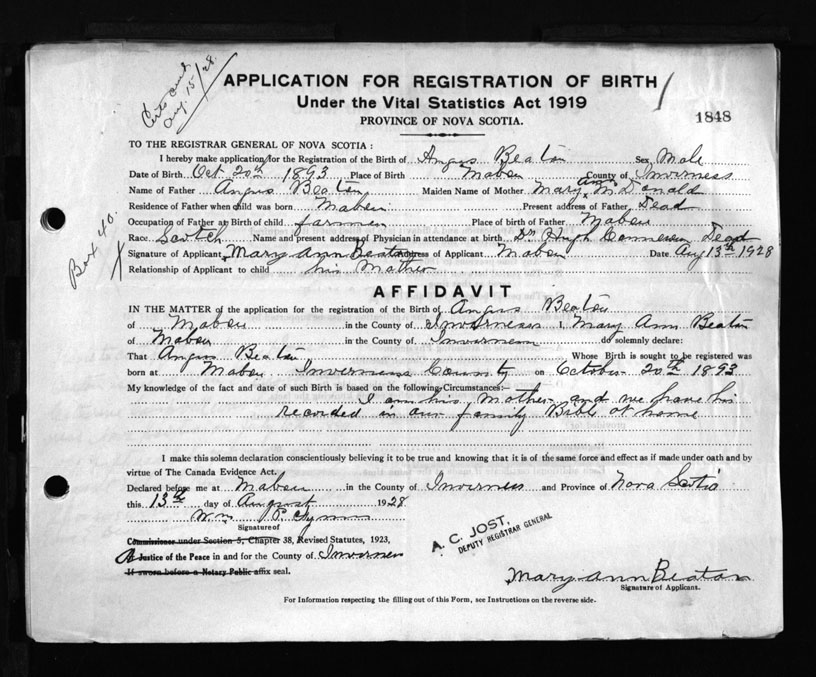 Certs and
Aug. 15/28.
APPLICATION FOR REGISTRATION OF BIRTH
Under the Vital Statistics Act 1919
PROVINCE OF NOVA SCOTIA.
1848
TO THE REGISTRAR GENERAL OF NOVA SCOTIA :
I hereby make application for the Registration of the Birth of Angus Beaton Sex Male
Date of Birth Oct 20th 1893 Place of Birth Mabou County of Inverness
Name of Father Angus Beaton Maiden Name of Mother Mary Ann McDonald
Residence of Father when child was born Mabou Present address of Father Dead
Occupation of Father at Birth of child farmer Place of birth of Father Mabou
Race Scotch Name and present address of Physician in attendance at birth Dr Hugh Cameron Dead
Signature of Applicant Mary Ann Beaton Address of Applicant Mabou Date Aug 13th 1928
Relationship of Applicant to child his Mother
Box 40.
AFFIDAVIT
IN THE MATTER of the application for the registration of the Birth of Angus Beaton
of Mabou in the County of Inverness I, Mary Ann Beaton
of Mabou in the County of Inverness do solemnly declare:
That Angus Beaton Whose Birth is sought to be registered was
born at Mabou Inverness County on October 20th 1893
My knowledge of the fact and date of such Birth is based on the following Circumstances:—
I am his Mother and we have his
recorded in our family Bible at home
I make this solemn declaration conscientiously believing it to be true and knowing that it is of the same force and effect as if made under oath and by
virtue of The Canada Evidence Act.
Declared before me at Mabou in the County of Inverness and Province of Nova Scotia
this 13th day of August 1928
Wm P.
Signature of
Commissioner under Section 5, Chapter 38, Revised Statutes, 1923,
A Justice of the Peace in and for the County of Inverness
If sworn before a Notary Public affix seal.
A. C. JOST.
DEPUTY REGISTRAR GENERAL
Mary Ann Beaton
Signature of Applicant.
For Information respecting the filling out of this Form, see Instructions on the reverse side.